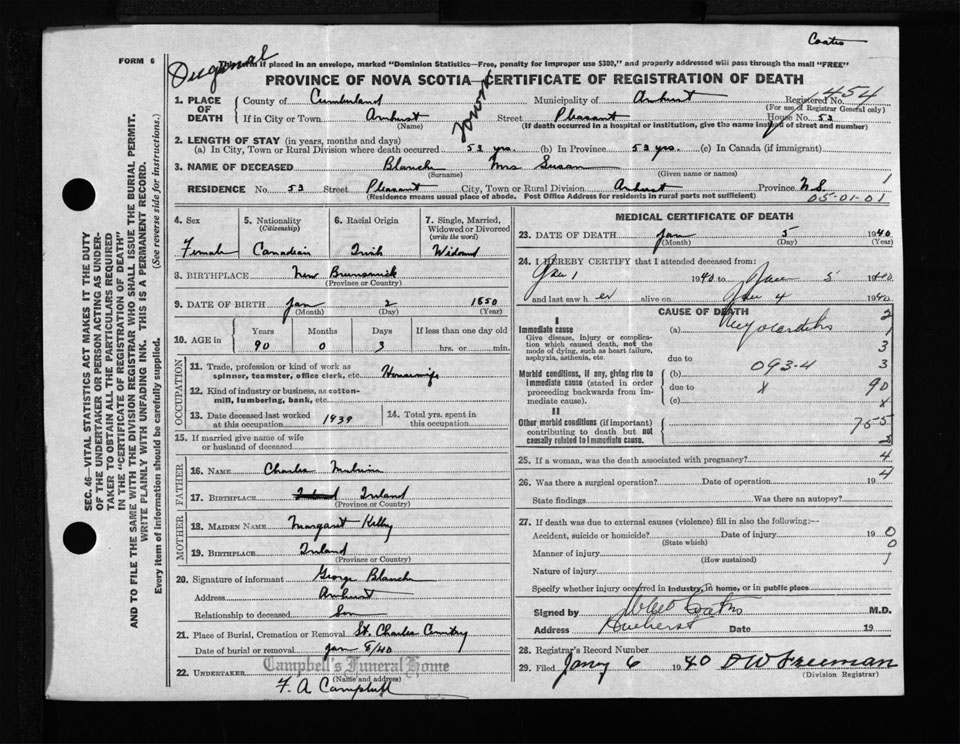 FORM 6
Coates
Form if placed in an envelope, marked "Dominion Statistics—Free, penalty for improper use $300," and properly addressed will pass through the mail "FREE"
PROVINCE OF NOVA SCOTIA—CERTIFICATE OF REGISTRATION OF DEATH
1. PLACE OF DEATH County of Cumberland Municipality of Amherst Registered No. 454
(For use of Registrar General only)
If in City or Town Amherst Street Pleasant House No. 53
(Name) (If death occurred in a hospital or institution, give the name instead of street and number)
Town
2. LENGTH OF STAY (in years, months and days)
(a) In City, Town or Rural Division where death occurred 53 yrs. (b) In Province 53 yrs. (c) In Canada (if immigrant)
3. NAME OF DECEASED Blanche Mrs Susan 1
(Surname) (Given name or names)
RESIDENCE No. 53 Street Pleasant City, Town or Rural Division Amherst Province N.S.
(Residence means usual place of abode. Post Office Address for residents in rural parts not sufficient) 05-01-01
4. Sex 5. Nationality (Citizenship) 6. Racial Origin 7. Single, Married, Widowed or Divorced (write the word)
Female Canadian Irish Widowed
8. BIRTHPLACE New Brunswick
(Province or Country)
9. DATE OF BIRTH Jan 2 1850
(Month) (Day) (Year)
10. AGE in Years Months Days If less than one day old
90 0 3 hrs. or min.
OCCUPATION
11. Trade, profession or kind of work as spinner, teamster, office clerk, etc. Housewife
12. Kind of industry or business, as cotton-mill, lumbering, bank, etc.
13. Date deceased last worked at this occupation 1939 14. Total yrs. spent in this occupation
15. If married give name of wife or husband of deceased
FATHER
16. NAME Charles
17. BIRTHPLACE Ireland
(Province or Country)
MOTHER
18. MAIDEN NAME Margaret Kelly
19. BIRTHPLACE Ireland
(Province or Country)
20. Signature of informant George Blanche
Address Amherst
Relationship to deceased Son
21. Place of Burial, Cremation or Removal St. Charles Cemetry
Date of burial or removal Jan 8/40
Campbell's Funeral Home
22. UNDERTAKER (Name and address)
F. A Campbell
MEDICAL CERTIFICATE OF DEATH
23. DATE OF DEATH Jan 5 1940
(Month) (Day) (Year)
24. I HEREBY CERTIFY that I attended deceased from:
Jan 1 1940 to Jan 5 1940
and last saw her alive on Jan 4 1940
CAUSE OF DEATH 2
I
Immediate cause (a) Myocarditis 1
Give disease, injury or complication which caused death, not the mode of dying, such as heart failure, asphyxia, asthenia, etc. 3
due to 093-4 3
Morbid conditions, if any, giving rise to immediate cause (stated in order proceeding backwards from immediate cause). (b)
due to x 90
(c) x
II
Other morbid conditions (if important) contributing to death but not causally related to immediate cause. 75-5
25. If a woman, was the death associated with pregnancy? 4
26. Was there a surgical operation? Date of operation 19 4
State findings Was there an autopsy?
27. If death was due to external causes (violence) fill in also the following:—
Accident, suicide or homicide? Date of injury 19 0
(State which) 0
Manner of injury 1
(How sustained)
Nature of injury
Specify whether injury occurred in industry, in home, or in public place
Signed by Coates M.D.
Address Amherst Date 19
28. Registrar's Record Number
29. Filed Jany 6 1940 D W Freeman
(Division Registrar)
SEC. 46—VITAL STATISTICS ACT MAKES IT THE DUTY
OF THE UNDERTAKER OR PERSON ACTING AS UNDER-
TAKER TO OBTAIN ALL THE PARTICULARS REQUIRED
IN THE "CERTIFICATE OF REGISTRATION OF DEATH"
AND TO FILE THE SAME WITH THE DIVISION REGISTRAR WHO SHALL ISSUE THE BURIAL PERMIT.
WRITE PLAINLY WITH UNFADING INK. THIS IS A PERMANENT RECORD.
Every item of information should be carefully supplied. (See reverse side for instructions.)